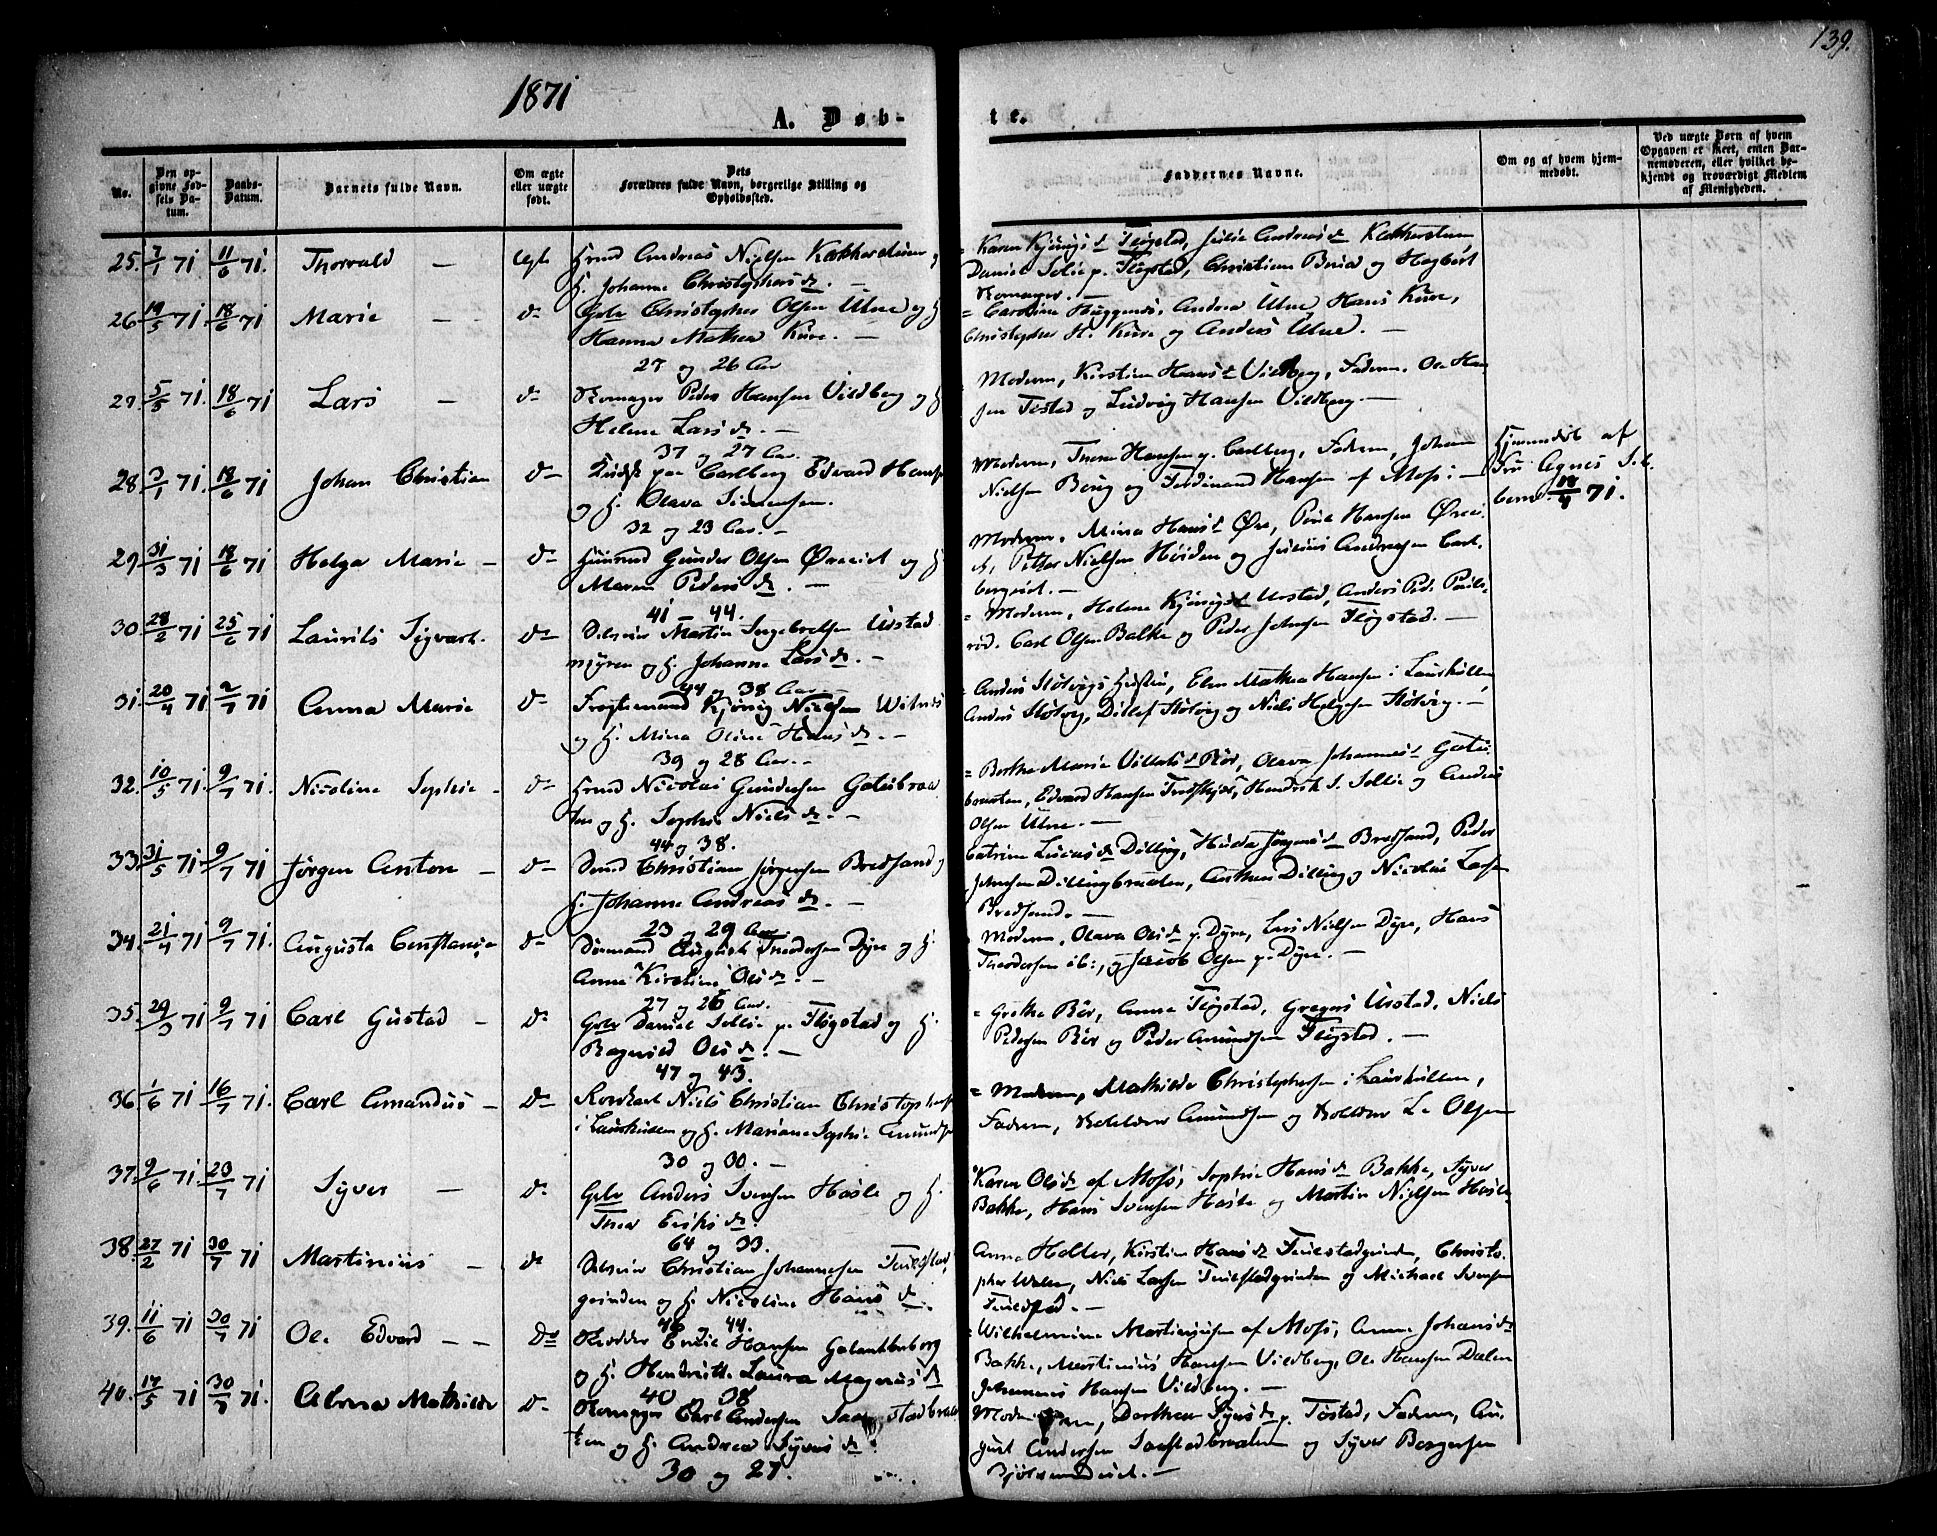 139.
1871
A. Døb-
te.
No.
Den op-
givne Fød-
sels Da-
tum.
Daabs-
Datum.
Barnets fulde Navn.
Om ægte
eller uægte
født.
Dets
Forældres fulde Navn, borgerlige Stilling og
Opholdssted.
Faddernes Navne.
Om og af hvem hjem-
medøbt.
Ved uægte Børn af hvem
Opgaven er skeet, enten Bar-
nemoderen, eller hvilket be-
kjendt og troværdigt Medlem
af Menigheden.
25. 7/1 71. 11/6 71. Thorvald – ægte Andreas Nielsen
H. Johanne Christophersd. –
Karen Flögstad, Julie Andreasd.
Daniel Solie p. Flögstad, Christian og Hagbart
26 19/5 71. 18/6 71 Marie – – d– Christopher Olsen Ulne og H
Hanna Mathea Kure. –
27 og 26 Aar
Caroline Huggenes, Andrea Ulne, Hans Kure,
Christopher H. Kure og Anders Ulne. –
27. 5/5 71. 18/6 71 Lars – d– Peder Hansen Vildberg og H
Helene Larsd. –
37 og 27 Aar.
Moderen, Kirstine Hansd Vildberg, Faderen, Ole Han
sen Tøstad og Ludvig Hansen Vildberg. –
28. 3/1 71. 18/6 71 Johan Christian d– Kudsk paa Carlberg Edvard Hansen
og H. Olava Simensen.
32 og 23 Aar. –
Moderen, Thea Hansen p. Carlberg, Faderen, Johan
Nielsen Berg og Ferdinand Hansen af Moss: –
Hjemmedøbt af
Fru Agnes
71.
29 31/3 71 18/6 71 Helga Marie – d– Huusmd Gunder Olsen Øreeiet og H
Maren Pedersd. –
41 – 44.
Moderen, Mina Hansd Øre, Poul Hansen Øreei
et, Petter Nielsen Høiden og Julius Andersen Carl-
bergeiet. –
30. 28/2 71 25/6 71 Laurits Sigvart. d– Martin Ingebretsen Urstad
myren og H. Johanne Larsd. –
44 og 38 Aar. –
Moderen, Helene Urstad, Anders Ped. Pouls-
rød. Carl Olsen Balke og Peder Johnsen Flögstad. –
31. 20/4 71 2/7 71 Anna Marie d– Kjönig Nielsen
og H. Mina Oline Hansd. –
39 og 28 Aar. –
Anders Støtvigs Hustru, Elen Mathea Hansen i Laurkullen,
Anders Støtvig, Ditlef Støtvig og Niels Helgesen Støtvig. –
32. 10/5 71. 9/7 71. Nicoline Sophie – d– Nicolai Gundersen Gatubraa
ten og H. Sophie Nielsd. –
44 og 38.
Berthe Marie Rør, Olava Johannesd Gatu-
braaten, Edvard Hansen Hendrik S. Sollie og Anders
Olsen Ulne. –
33. 31/5 71. 9/7 71 Jørgen Anton – d– Christian Jørgensen Bredsand og
H. Johanne Andreasd. –
23 og 29 Aar.
Catrine Lucasd Dilling, Hulda Jørgensd Bredsand, Peder
Johnsen Dillingbraaten, Dilling og Nicolai Larsen
Bredsand. –
34. 21/4 71 9/7 71. Augusta Constanse d– August Theodorsen Dyre og H.
Anne Kirstine Olsd. –
27 og 26 Aar.
Moderen, Olava Olsd p. Dyre, Lars Nielsen Dyre, Hans
Theodorsen ib:, og Jacob Olsen p. Dyre. –
35. 29/3 71 9/7 71 Carl Gustad – d– Daniel Sollie p. Flögstad og H.
Ragnild Olsd. –
47 og 43.
Grethe Bör, Anna Flögstad, Gregers Urstad, Niels
Pedersen Bör og Peder Amundsen Flögstad. –
36 1/6 71 16/7 71. Carl Amandus – d– Niels Christian Christophersen
i Laurkullen og H. Mariane Sophie Amundsen
30 og 30. –
Moderen, Mathilde Christophersen i Laurkullen,
Faderen, Amundsen og L. Olsen
37. 9/6 71 23/7 71 Syver – d– Anders Svensen Hasle og H.
Thea Eriksd.
64 og 33.
Karen Olsd af Moss, Sophie Hansd Bakke, Syver
Bakke, Hans Svensen Hasle og Martin Nielsen Hasle
38. 27/2 71 30/7 71 Martinius – d– Christian Johannesen
grinden og H. Nicoline Hansd. –
46 og 44.
Anne Holter, Kirstine Hansd Christo-
pher Walen, Niels Larsen og Michael Svensen
39. 11/6 71 30/7 71 Ole Edvard – – d– Emil Hansen Galanthaborg
og H. Hendriette Laura Magnusd
40 38
Wilhelmine Martinussen af Moss, Anne Johansd
Bakke, Martinius Hansen Vildberg, Ole Hansen Dalen
Johannes Hansen Vildberg. –
40. 17/5 71 30/7 71. Alma Mathilde d– Carl Andersen
ten og H. Andrea Syversd.
30 og 27.
Moderen, Dorthea Syversd p. Tøstad, Faderen, Au-
gust Andersen og Syver Borgersen